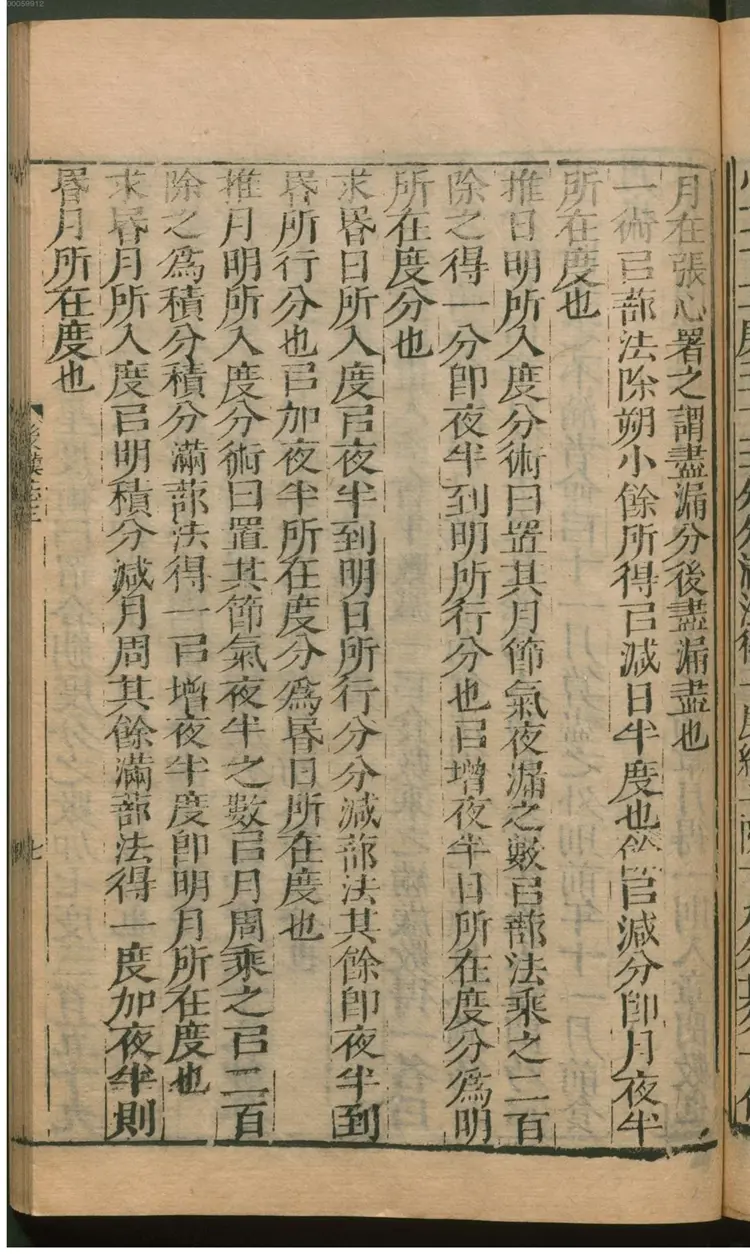 月在張心署之謂盡漏分後盡漏盡也
一術㠯蔀法除朔小餘所得㠯減日半度也餘㠯減分卽月夜半
所在度也
推日明所入度分術曰置其月節氣夜漏之數㠯蔀法乘之二百
除之得一分卽夜半到明所行分也㠯增夜半日所在度分爲明
所在度分也
求昬日所入度㠯夜半到明日所行分分減蔀法其餘卽夜半到
昬所行分也㠯加夜半所在度分爲昬日所在度也
推月明所入度分術曰置其節氣夜半之數㠯月周乘之㠯二百
除之爲積分積分滿蔀法得一㠯增夜半度卽明月所在度也
求昬月所入度㠯明積分減月周其餘滿蔀法得一度加夜半則
昬月所在度也
後漢志三
七
00059912